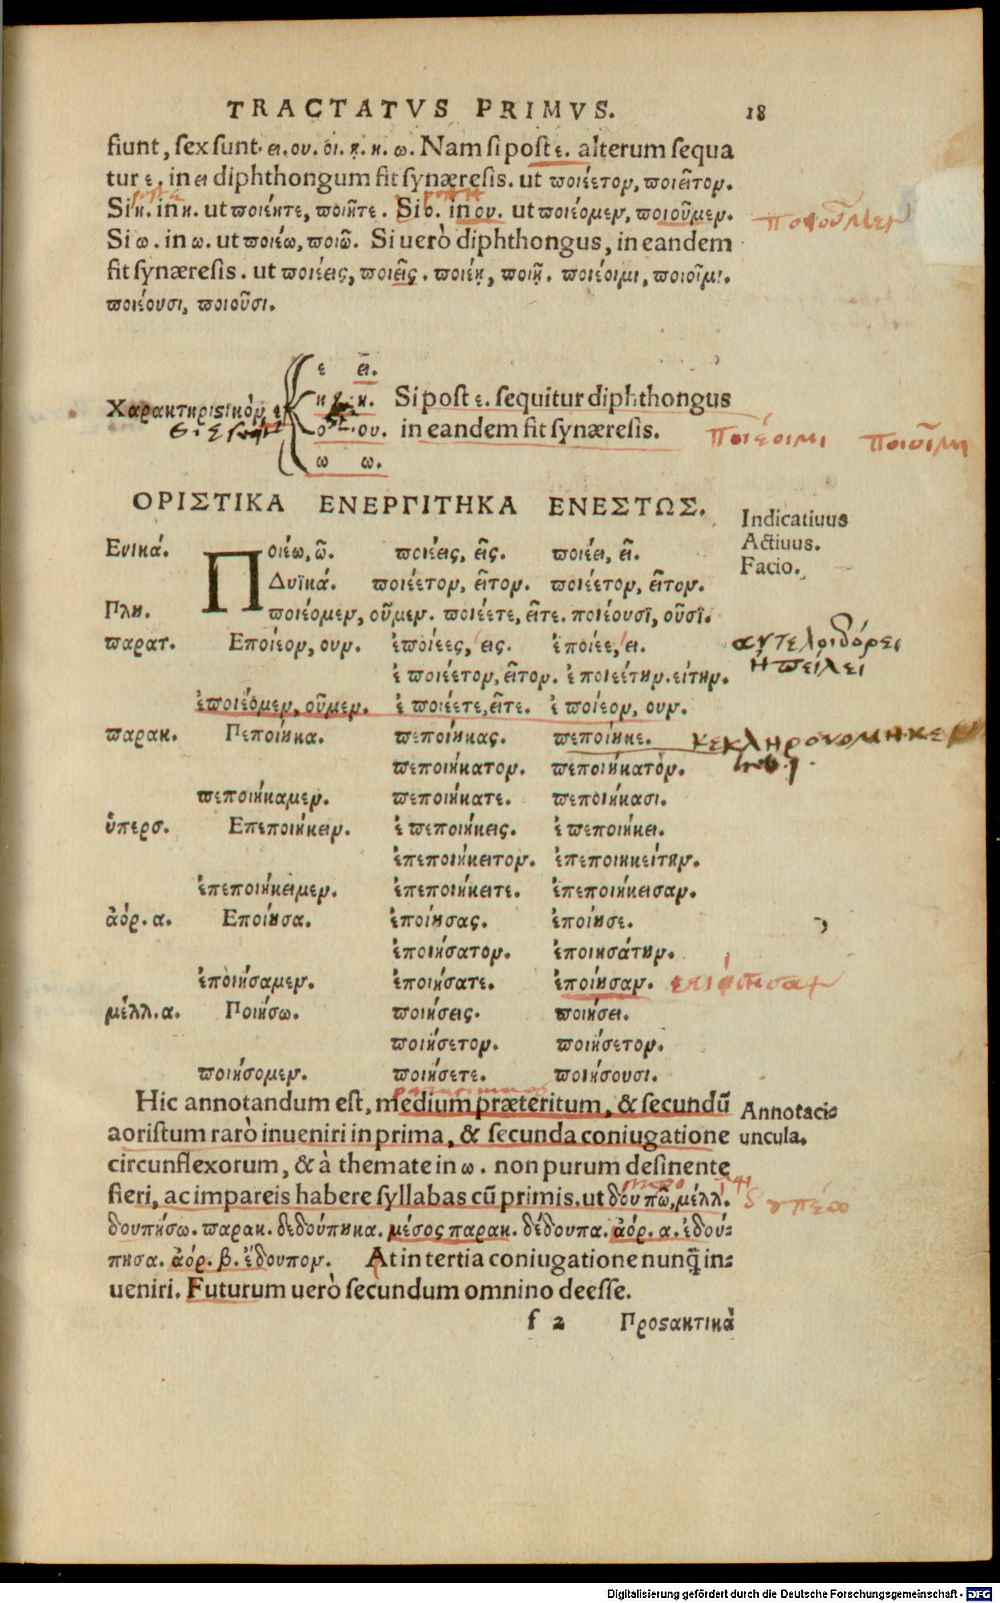 TRACTATVS PRIMVS. 18
fiunt, sex sunt. ει. ου. οι. ῃ. η. ω. Nam si post ε. alterum sequa
tur ε. in ει diphthongum fit synæresis. ut ποιέετον, ποιεῖτον.
Si η. in η. ut ποιέητε, ποιῆτε. Si ο. in ου. ut ποιέομεν, ποιοῦμεν. ποιοῦμεν
Si ω. in ω. ut ποιέω, ποιῶ. Si uerò diphthongus, in eandem
fit synæresis. ut ποιέεις, ποιεῖς. ποιέῃ, ποιῇ. ποιέοιμι, ποιοῖμι.
ποιέουσι, ποιοῦσι.
ε ει.
Χαρακτηριστικὸν ε η η. Si post ε. sequitur diphthongus
ο ου. in eandem fit synæresis. ποιέοιμι ποιοῖμι
ω ω.
ΟΡΙΣΤΙΚΑ ΕΝΕΡΓΙΤΗΚΑ ΕΝΕΣΤΩΣ.
Indicatiuus
Actiuus.
Facio.
Ενικά. Ποιέω, ῶ. ποιέεις, εῖς. ποιέει, εῖ.
Δυϊκά. ποιέετον, εῖτον. ποιέετον, εῖτον.
Πλη. ποιέομεν, οῦμεν. ποιέετε, εῖτε. ποιέουσῖ, οῦσῖ.
παρατ. Εποίεον, ουν. ἐποίεες, εις. ἐποίεε, ει. αντελοιδόρει
ἐποιέετον, εῖτον. ἐποιεέτην. είτην. ἠπείλει
ἐποιέομεν, οῦμεν. ἐποιέετε, εῖτε. ἐποίεον, ουν.
παρακ. Πεποίηκα. πεποίηκας. πεποίηκε. κεκληρονομηκεν
πεποιήκατον. πεποιήκατὸν. heb. 1.
πεποιήκαμεν. πεποιήκατε. πεποιήκασι.
ὑπερσ. Επεποιήκειν. ἐπεποιήκεις. ἐπεποιήκει.
ἐπεποιήκειτον. ἐπεποιηκείτην.
ἐπεποιήκειμεν. ἐπεποιήκειτε. ἐπεποιήκεισαν.
ἀόρ. α. Εποίησα. ἐποίησας. ἐποίησε.
ἐποιήσατον. ἐποιησάτην.
ἐποιήσαμεν. ἐποιήσατε. ἐποίησαν.
μέλλ. α. Ποιήσω. ποιήσεις. ποιήσει.
ποιήσετον. ποιήσετον.
ποιήσομεν. ποιήσετε. ποιήσουσι.
Hic annotandum est, medium præteritum, & secundū Annotaci=
aoristum rarò inueniri in prima, & secunda coniugatione uncula.
circunflexorum, & à themate in ω. non purum desinente
fieri, ac impareis habere syllabas cū primis. ut δουπῶ, μέλλ. δουπέω
δουπήσω. παρακ. δεδούπηκα. μέσος παρακ. δέδουπα. ἀόρ. α. ἐδού=
πησα. ἀόρ. β. ἔδουπον. At in tertia coniugatione nunq̄ in=
ueniri. Futurum uerò secundum omnino deesse.
f 2 Προςακτικὰ
Digitalisierung gefördert durch die Deutsche Forschungsgemeinschaft - DFG